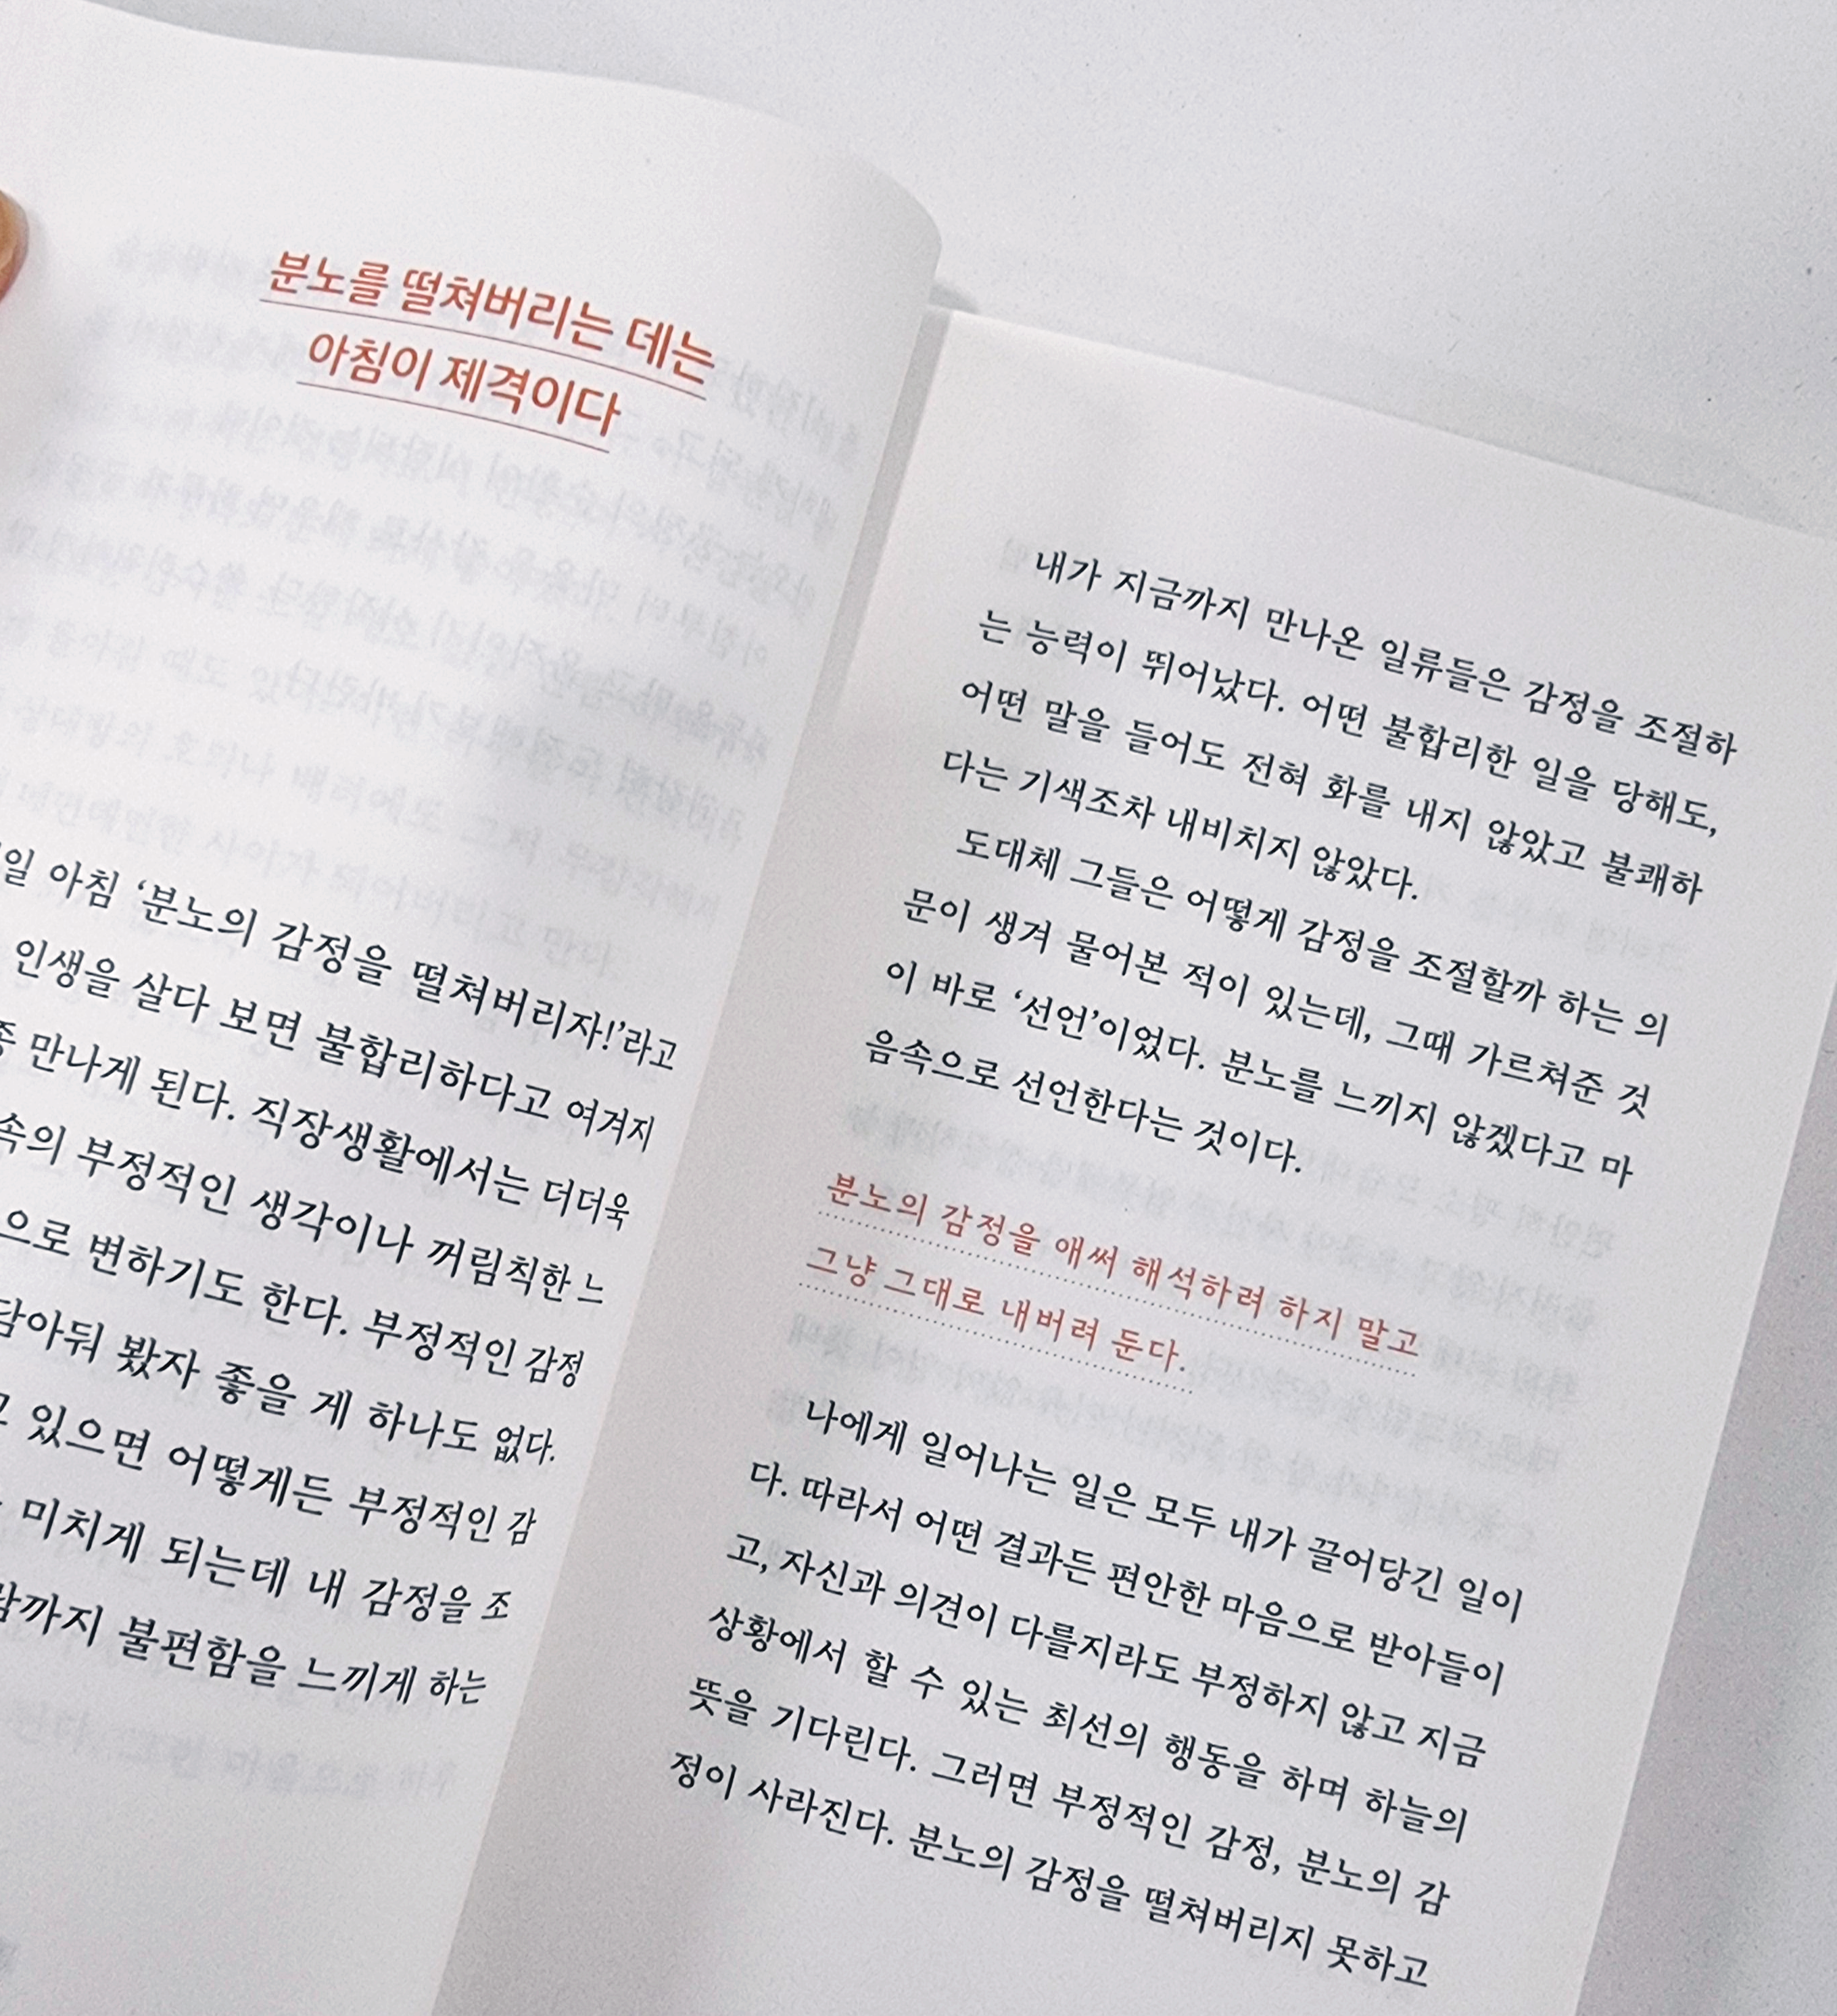 분노를 떨쳐버리는 데는
아침이 제격이다
아침 ‘분노의 감정을 떨쳐버리자!’라고
인생을 살다 보면 불합리하다고 여겨지
만나게 된다. 직장생활에서는 더더욱
부정적인 생각이나 꺼림칙한 느
변하기도 한다. 부정적인 감정
봤자 좋을 게 하나도 없다.
있으면 어떻게든 부정적인 감
미치게 되는데 내 감정을 조
불편함을 느끼게 하는
내가 지금까지 만나온 일류들은 감정을 조절하
는 능력이 뛰어났다. 어떤 불합리한 일을 당해도,
어떤 말을 들어도 전혀 화를 내지 않았고 불쾌하
다는 기색조차 내비치지 않았다.
도대체 그들은 어떻게 감정을 조절할까 하는 의
문이 생겨 물어본 적이 있는데, 그때 가르쳐준 것
이 바로 ‘선언’이었다. 분노를 느끼지 않겠다고 마
음속으로 선언한다는 것이다.
분노의 감정을 애써 해석하려 하지 말고
그냥 그대로 내버려 둔다.
나에게 일어나는 일은 모두 내가 끌어당긴 일이
다. 따라서 어떤 결과든 편안한 마음으로 받아들이
고, 자신과 의견이 다를지라도 부정하지 않고 지금
상황에서 할 수 있는 최선의 행동을 하며 하늘의
뜻을 기다린다. 그러면 부정적인 감정, 분노의 감
정이 사라진다. 분노의 감정을 떨쳐버리지 못하고